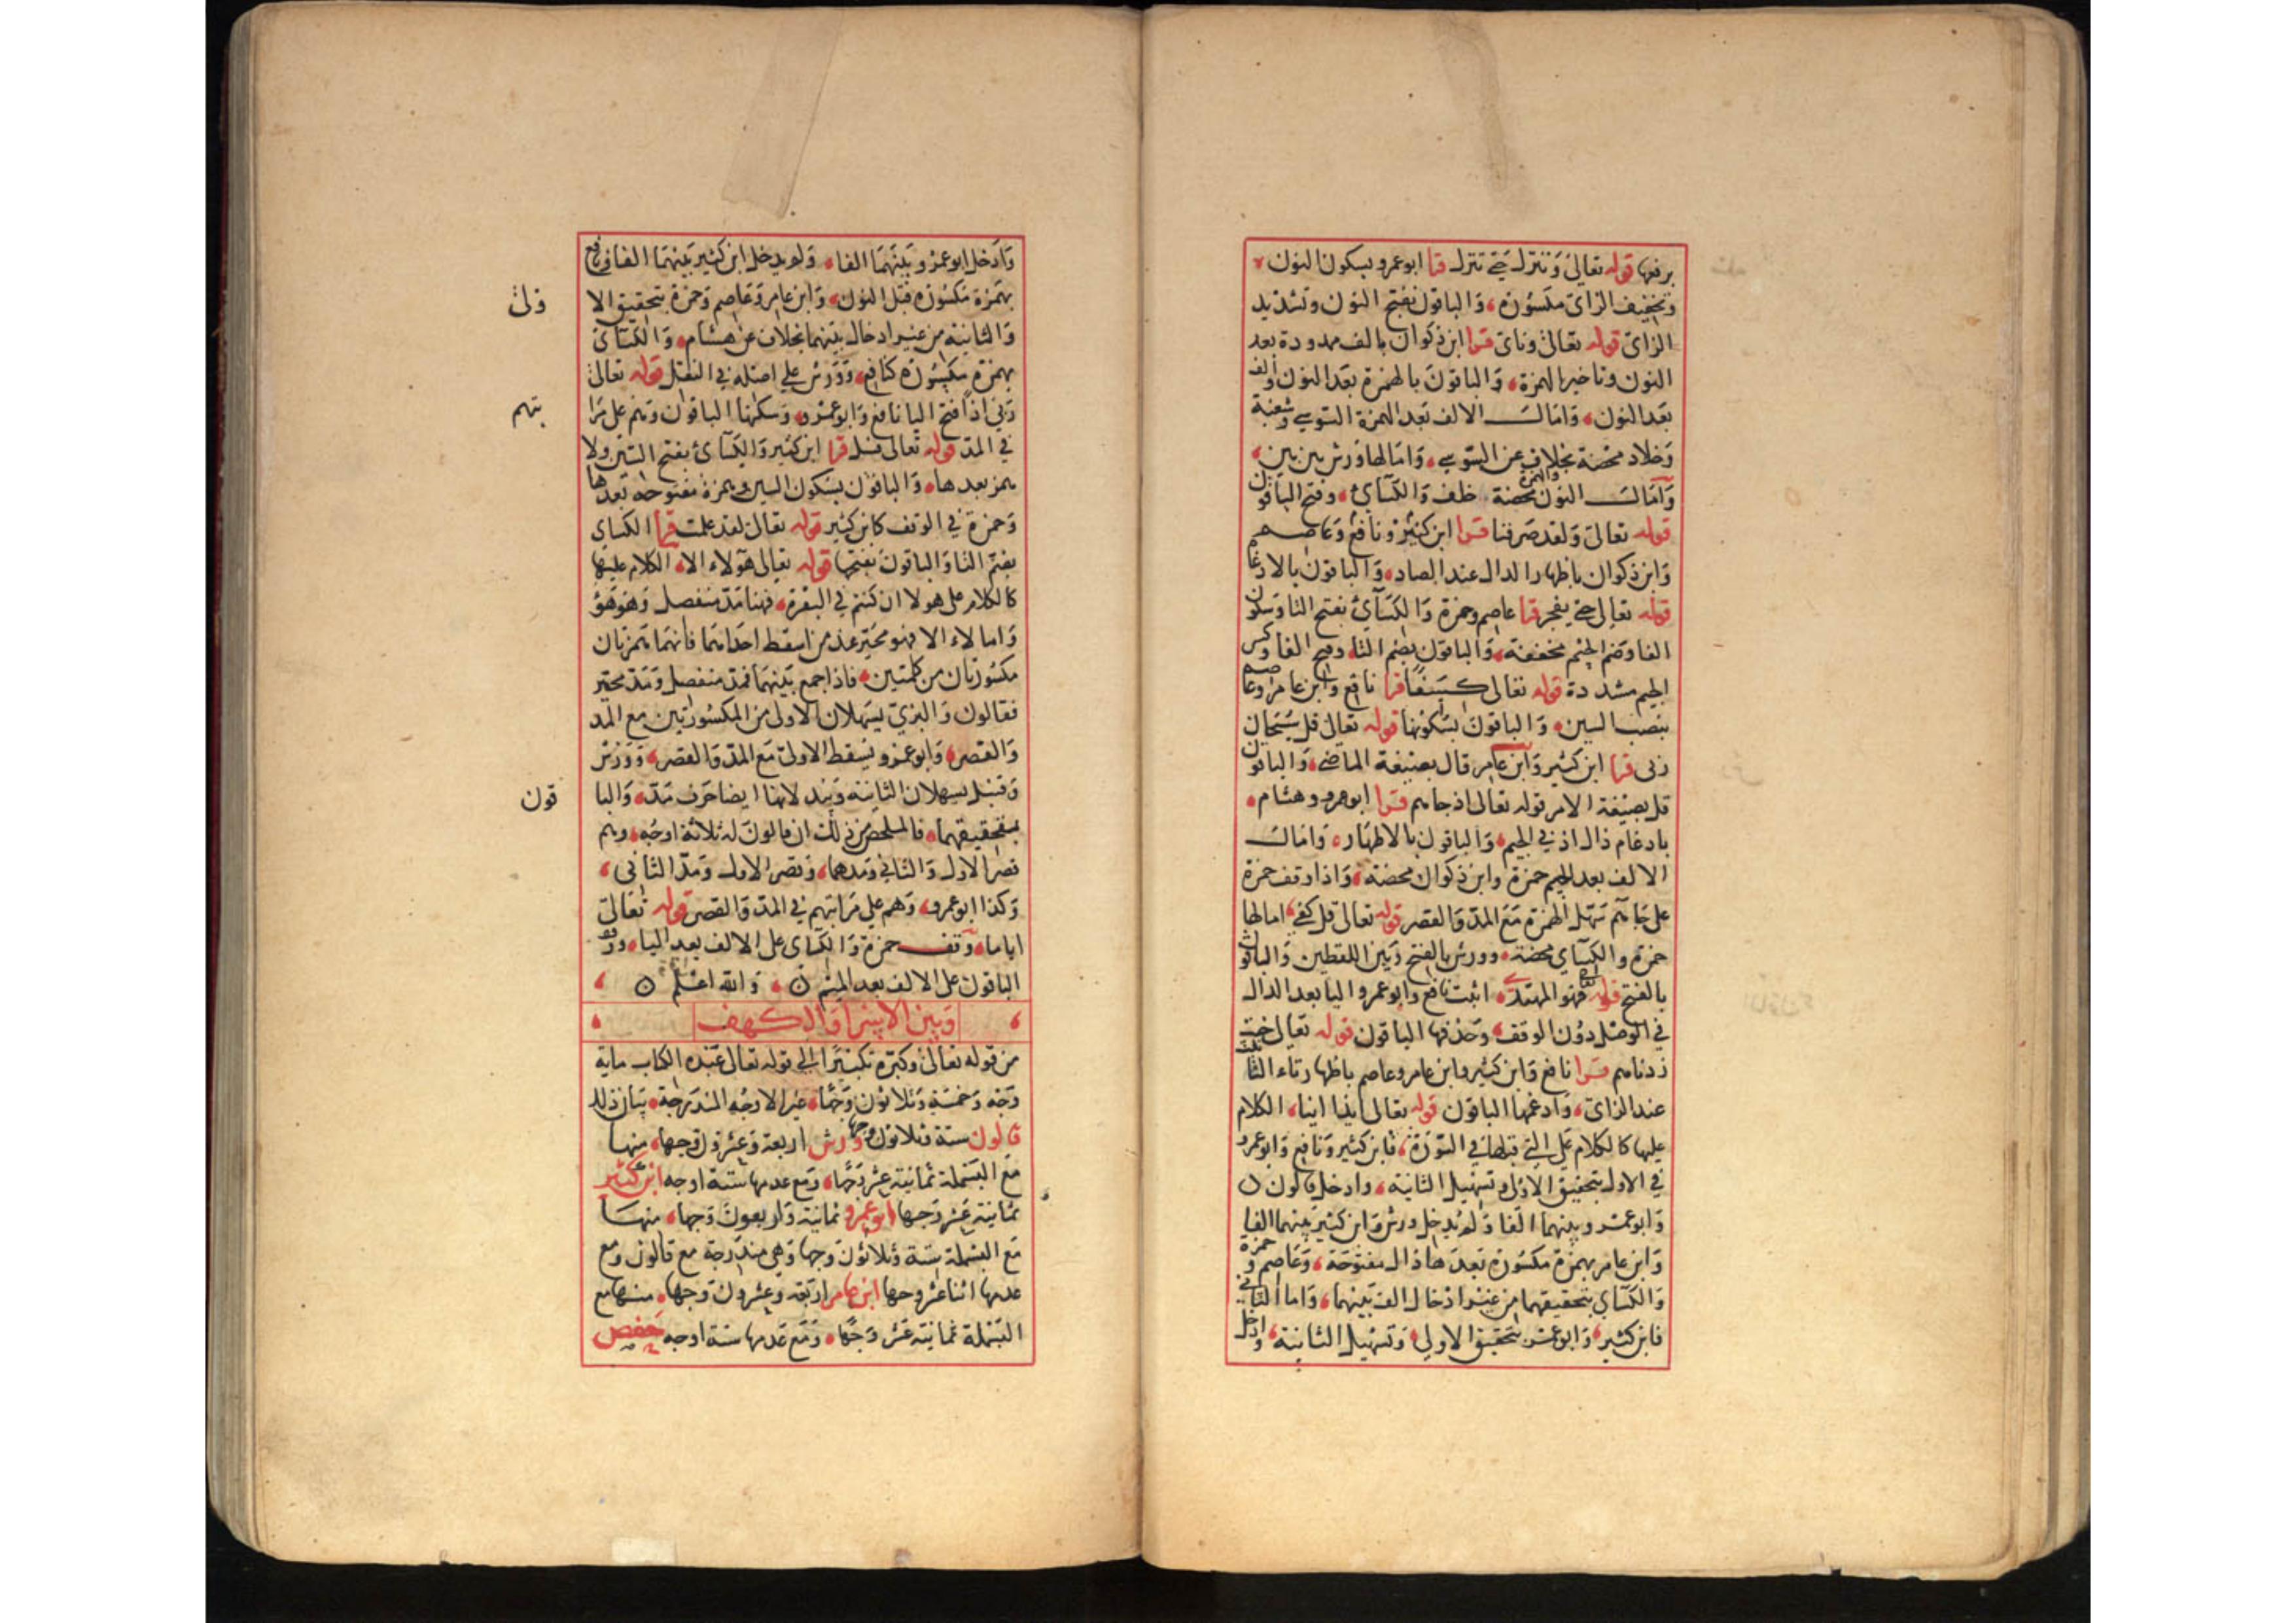 برفعها قوله تعالى وننزل حتى تنزل قرا ابوعمرو بسكون النون
وتخفيف الزاى مكسورة والباقون بفتح النون وتشديد
الزاى قوله تعالى وناى قرا ابن ذكوان بالف ممدودة بعد
النون وتاخير الهمزة والباقون بالهمزة بعد النون والف
بعد النون وامال الالف بعد الهمزة السوسى وشعبة
وخلاد محضة بخلاف عن السوسى وامالها ورش بين بين
وامال النون والهمزة محضة خلف والكساى وفتح الباقون
قوله تعالى ولقد صرفنا قرا ابن كثير ونافع وعاصم
وابن ذكوان باظهار الدال عند الصاد والباقون بالادغام
قوله تعالى حتى يفجر قرا عاصم وحمزة والكساى بفتح التا وسكون
الفا وضم الجيم مخففة والباقون بضم التا وفتح الفا وكسر
الجيم مشددة قوله تعالى كسفا قرا نافع وابن عامر وعاصم
بنصب السين والباقون بسكونها قوله تعالى قل سبحان
ربى قرا ابن كثير وابن عامر قال بصيغة الماضى والباقون
قل بصيغة الامر قوله تعالى اذ جاهم قرا ابوعمرو وهشام
بادغام ذال اذ في الجيم والباقون بالاظهار وامال
الالف بعد الجيم حمزة وابن ذكوان محضة واذا وقف حمزة
على جاهم سهل الهمزة مع المد والقصر قوله تعالى قل كفى امالها
حمزة والكساي محضة وورش بالفتح وبين اللفظين والباقون
بالفتح قوله تعالى فهو المهتدى اثبت نافع وابوعمرو اليا بعد الدال
في الوصل دون الوقف وحذفها الباقون قوله تعالى خبت
زدناهم قرا نافع وابن كثير وابن عامر وعاصم باظهار تاء التا
عند الزاى وادغمها الباقون قوله تعالى ايذا اينا الكلام
عليها كالكلام على التى قبلها في السورة فابن كثير ونافع وابوعمرو
في الاول بتحقيق الاولى وتسهيل الثانية وادخل قالون
وابوعمرو بينهما الفا ولم يدخل ورش وابن كثير بينهما الفا
وابن عامر بهمزة مكسورة بعدها ذال مفتوحة وعاصم وحمزة
والكساي بتحقيقهما من غير ادخال الف بينهما واما الثاني
فابن كثير وابوعمرو بتحقيق الاولى وتسهيل الثانية وادخل
وادخل ابوعمرو بينهما الفا ولم يدخل ابن كثير بينهما الفا ونافع
بهمزة مكسورة قبل النون وابن عامر وعاصم وحمزة بتحقيق الا
ولى
والثانية من غير ادخال بينهما بخلاف عن هشام والكساى
بهمزة مكسورة كنافع وورش على اصله في النقل قوله تعالى
ربي اذا فتح اليا نافع وابوعمرو وسكنها الباقون وهم على مرا
تبهم
في المد قوله تعالى فسل قرا ابن كثير والكساى بفتح السين ولا
همز بعدها والباقون بسكون السين وبهمزة مفتوحة بعدها
وحمزة في الوقف كابن كثير قوله تعالى لقد علمت قرا الكساى
بضم التا والباقون بفتحها قوله تعالى هولاء الا الكلام عليها
كالكلام على هولا ان كنتم في البقرة فهنا مد منفصل وهو هؤ
واما لاء الا فهو مخير عند من اسقط احداهما فانهما همزتان
مكسورتان من كلمتين فاذا جمع بينهما فمد منفصل ومد مخير
فقالون والبزي يسهلان الاولى من المكسورتين مع المد
والقصر وابوعمرو يسقط الاولى مع المد والقصر وورش
وقنبل يسهلان الثانية ويبدلانها ايضا حرف مد والبا
قون
بتحقيقهما فالملخص من ذلك ان قالون له ثلاثة اوجه وهم
قصر الاول والثاني ومدهما وقصر الاول ومد الثانى
وكذا ابوعمرو وهم على مراتبهم في المد والقصر قوله تعالى
اياما وقف حمزة والكساى على الالف بعد اليا ووقف
الباقون على الالف بعد الميم والله اعلم
وبين الاسرا والكهف
من قوله تعالى وكبره تكبيرا الى قوله تعالى عبده الكتاب ماية
وجه وخمسة وثلاثون وجها غير الاوجه المندرجة بيان ذلك
قالون ستة وثلاثون وجها ورش اربعة وعشرون وجها منها
مع البسملة ثمانية عشر وجها ومع عدمها ستة اوجه ابن كثير
ثمانية عشر وجها ابوعمرو ثمانية واربعون وجها منها
مع البسملة ستة وثلاثون وجها وهى مندرجة مع قالون ومع
عدمها اثناعشر وجها ابن عامر اربعة وعشرون وجها منها مع
البسملة ثمانية عشر وجها ومع عدمها ستة اوجه حفص